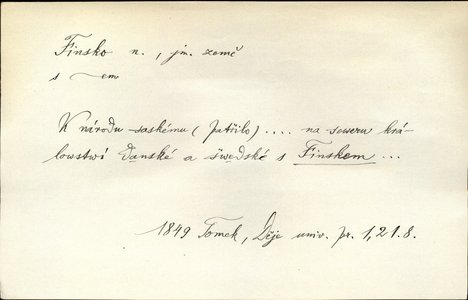 Finsko n., jm. země
s ~em
K národu saskému (patřilo) .... na seweru krá-
lowstwí Danské a šwedské s Finskem ...
1849 Tomek, Děje univ. pr. 1,21.8.